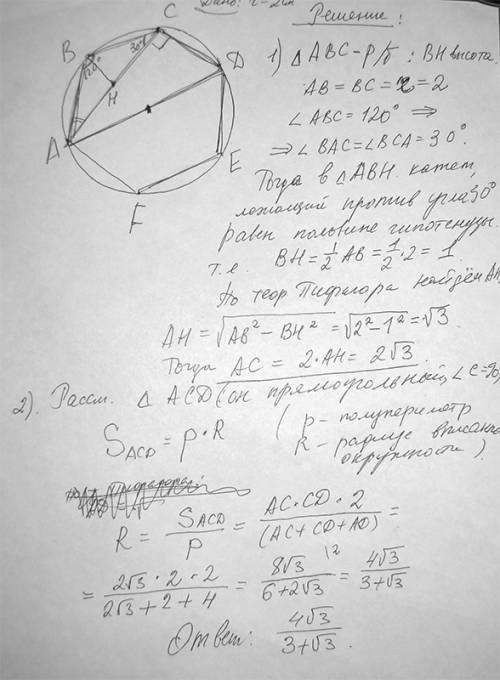 Дано: r-2см
Решение:
C
B
30°
D
120°
H
A
E
F
1) △ABC-р/б: BH высота.
AB = BC = r = 2
∠ABC = 120° ⇒
⇒ ∠BAC = ∠BCA = 30°.
Тогда в △ABH катет,
лежащий против угла 30°
равен половине гипотенузы.
т.е. BH = 1/2 AB = 1/2 · 2 = 1
По теор Пифагора найдём AH
AH = √(AB² - BH²) = √(2² - 1²) = √3.
Тогда AC = 2·AH = 2√3.
2). Рассм. △ ACD (он прямоугольный, ∠C=90
S_ACD = p · R ( p - полупериметр
R - радиус вписанно
окружности )
R = S_ACD / p = AC·CD·2 / (AC+CD+AD) =
= 2√3 · 2 · 2 / 2√3 + 2 + 4 = 8√3 / 6+2√3 |2 = 4√3 / 3+√3
Ответ: 4√3 / 3+√3 .